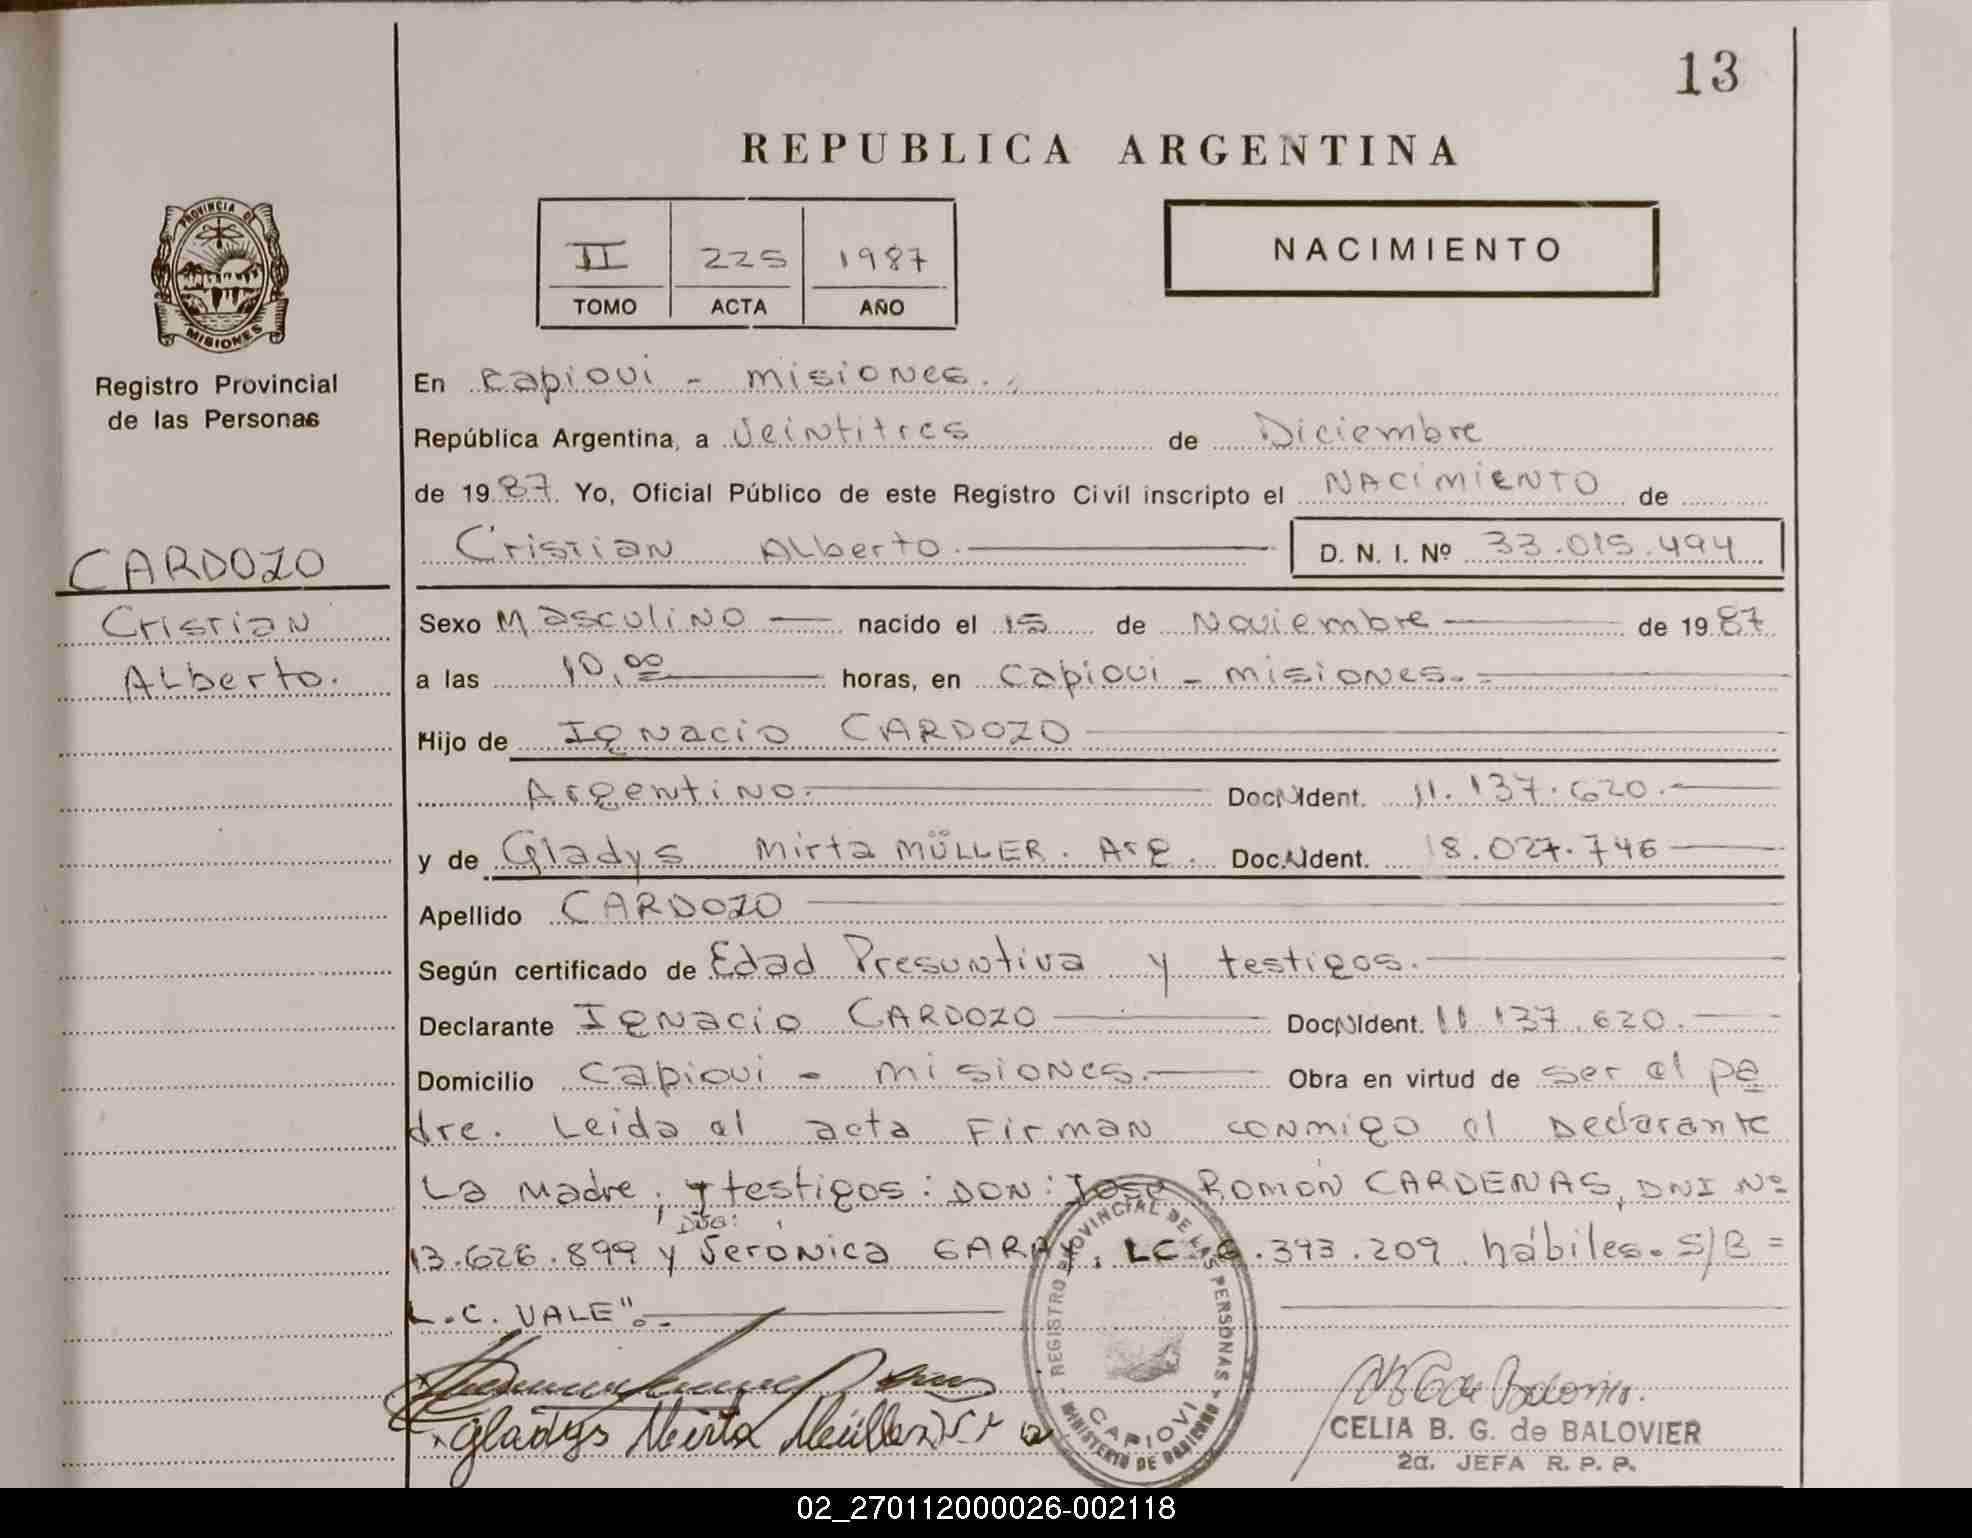 13
REPUBLICA ARGENTINA
PROVINCIA DE
MISIONES
Registro Provincial
de las Personas
II 225 1987
TOMO ACTA AÑO
NACIMIENTO
En Capioui - misiones.
República Argentina, a Veintitres de Diciembre
de 1987. Yo, Oficial Público de este Registro Civil inscripto el NACIMIENTO de
Cristian Alberto. D. N. I. Nº 33.015.494
CARDOZO
Cristian
Alberto.
Sexo Masculino nacido el 15 de Noviembre de 1987
a las 10,00 horas, en Capioui - misiones.
Hijo de Ignacio CARDOZO
Argentino. Doc.N.Ident. 11.137.620.
y de Gladys Mirta MÜLLER. Arg. Doc.N.Ident. 18.027.746
Apellido CARDOZO
Según certificado de Edad Presuntiva y testigos.
Declarante Ignacio CARDOZO Doc.N.Ident. 11.137.620.
Domicilio Capioui - misiones. Obra en virtud de ser el pa
dre. Leida el acta Firman conmigo el Declarante
La Madre, y testigos: DON: Jose ROMÓN CARDENAS, DNI Nº
13.626.899 y Veronica GARAY. LC 6.393.209. hábiles. S/B =
L.C. VALE".
REGISTRO PROVINCIAL DE LAS PERSONAS
MINISTERIO DE GOBIERNO
CAPIOVI
Gladys Mirta Müller
CELIA B. G. de BALOVIER
2a. JEFA R. P. P.
02_270112000026-002118